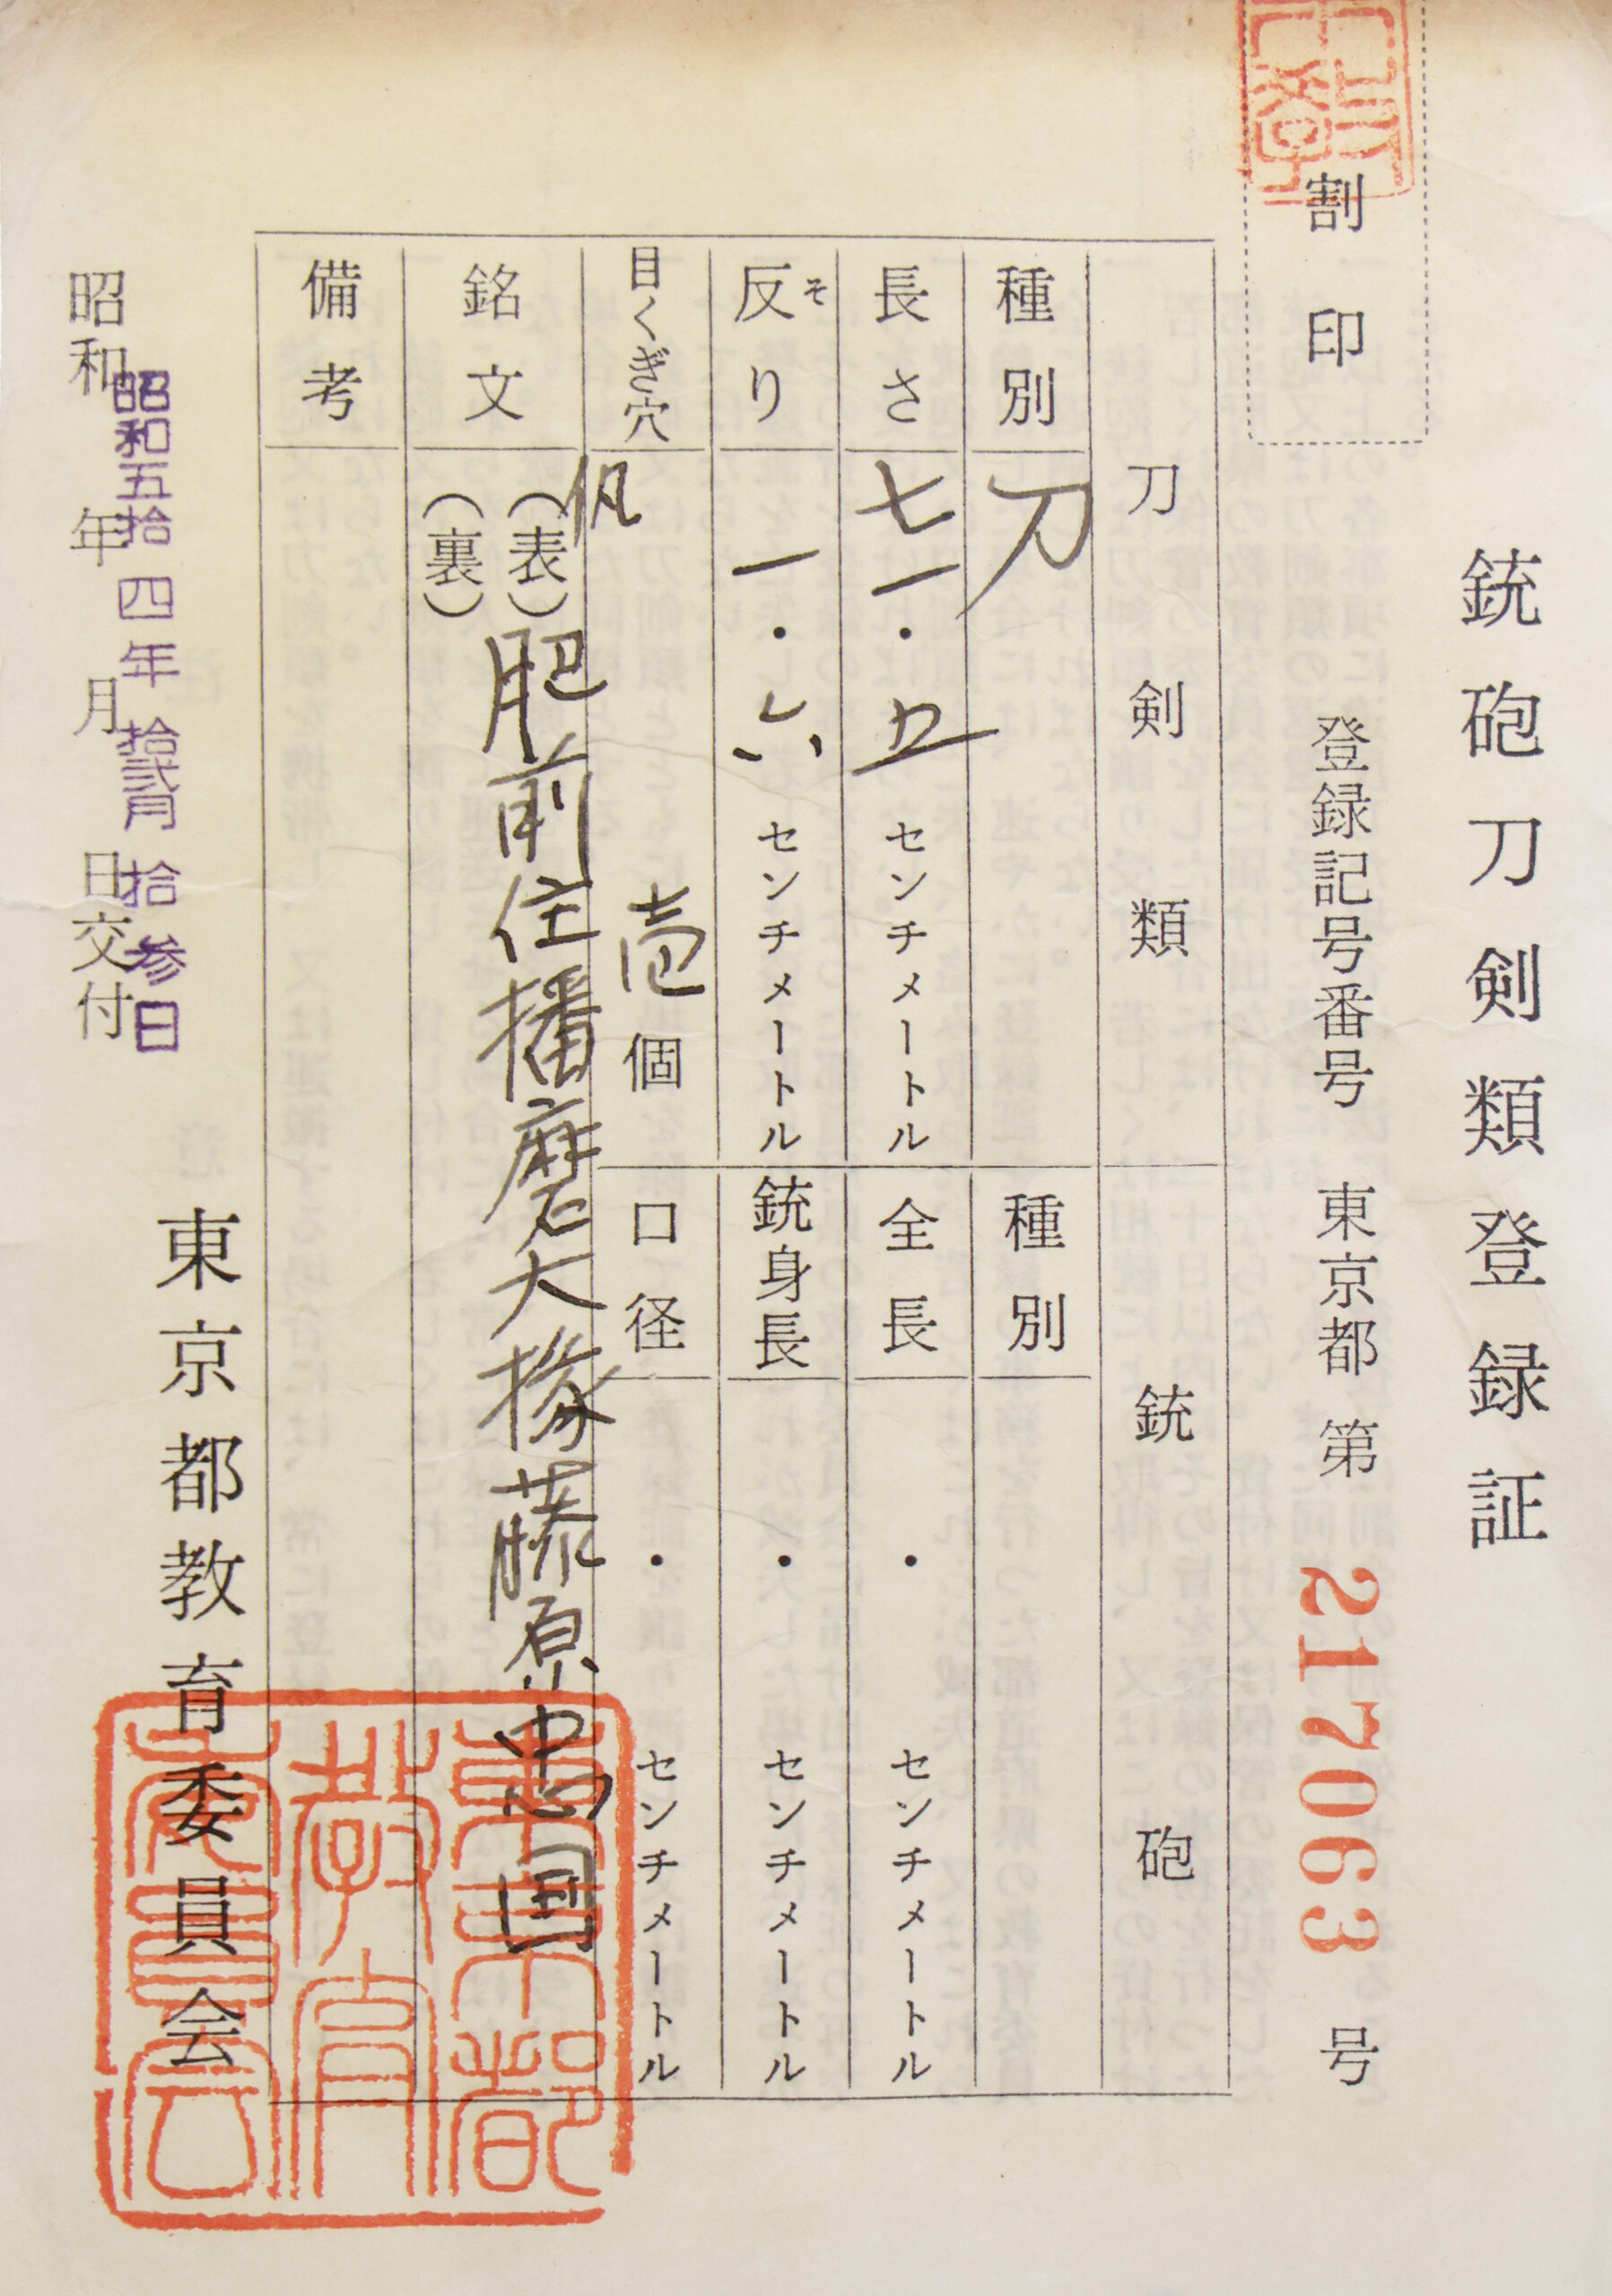 銃砲刀剣類登録証
割印
登録記号番号 東京都 第 217063 号
刀剣類 銃砲
種別 刀
種別
長さ 七一・五センチメートル
全長 ・ センチメートル
反り 一・六センチメートル
そ
銃身長 ・ センチメートル
目くぎ穴 壱個
口径 ・ センチメートル
銘文 (表) 肥前住播磨大掾藤原忠国
(裏)
備考
東京都教育委員会
昭和五拾四年拾弐月拾参日
昭和 年 月 日交付